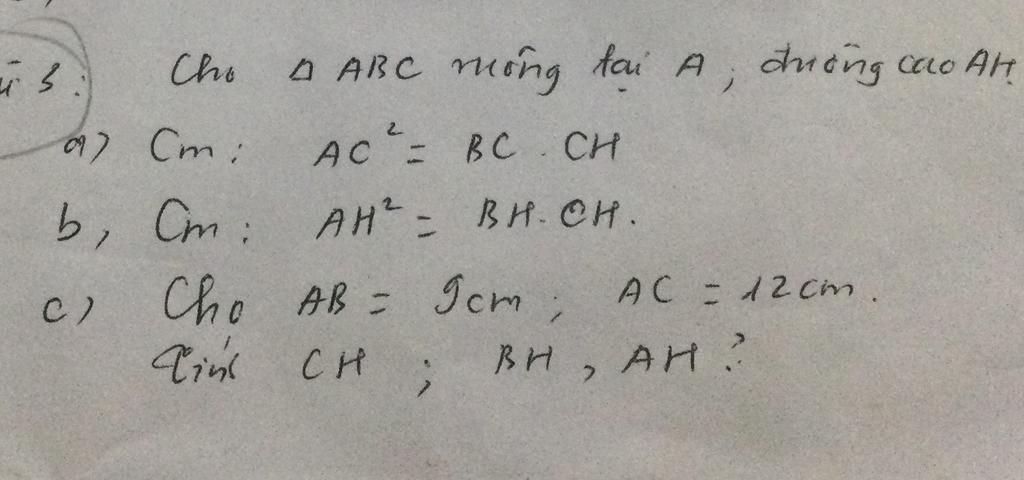 3: Cho Δ ABC vuông tại A, đường cao AH.
a) Cm: AC² = BC . CH
b, Cm: AH² = BH. CH.
c) Cho AB = 9cm; AC = 12cm.
Tính CH ; BH, AH ?